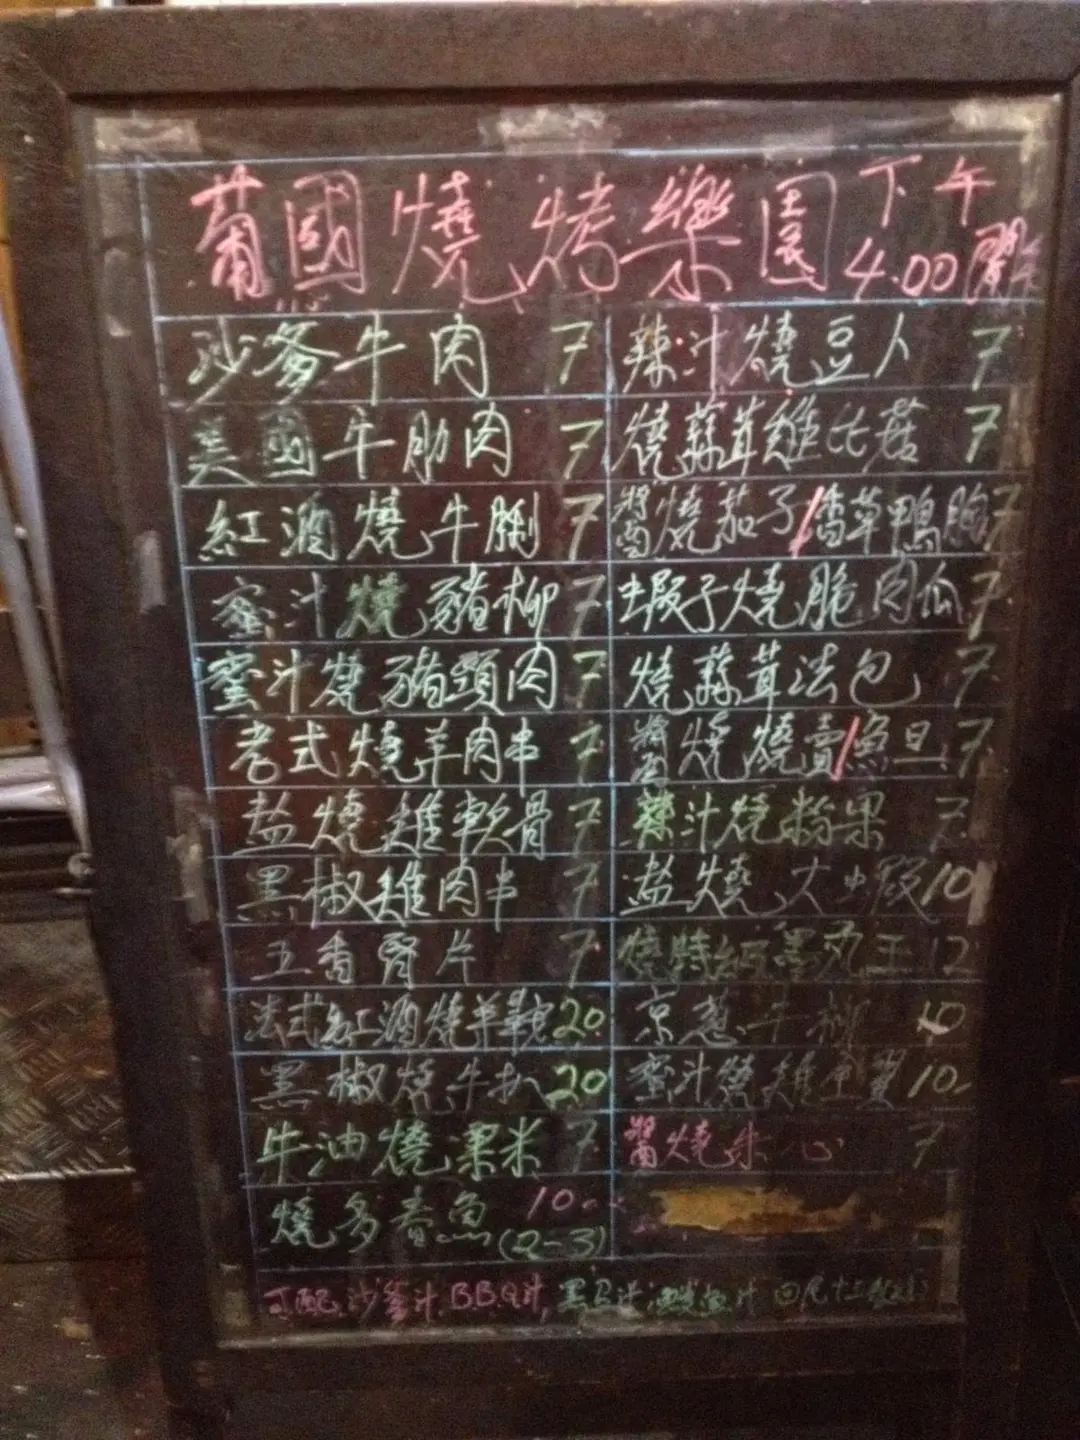 葡國燒烤樂園 下午
4.00開
沙爹牛肉 7
辣汁燒豆人 7
美國牛肋肉 7
燒蒜茸雞比菇 7
紅酒燒牛脷 7
醬燒茄子/香草鴨胸 7
蜜汁燒豬柳 7
虾子燒脆肉瓜 7
蜜汁燒豬頸肉 7
燒蒜茸法包 7
老式燒羊肉串 7
醬燒燒賣/魚旦 7
盐燒雞軟骨 7
辣汁燒粉果 7
黑椒雞肉串 7
盐燒大虾 10
五香腎片 7
燒特級墨丸王 12
法式紅酒燒羊鞍 20
京葱牛柳 10
黑椒燒牛扒 20
蜜汁燒雞全翼 10
牛油燒粟米 7
醬燒 心 7
燒多春魚 10
(2-3)
可配 沙爹汁 BBQ汁,